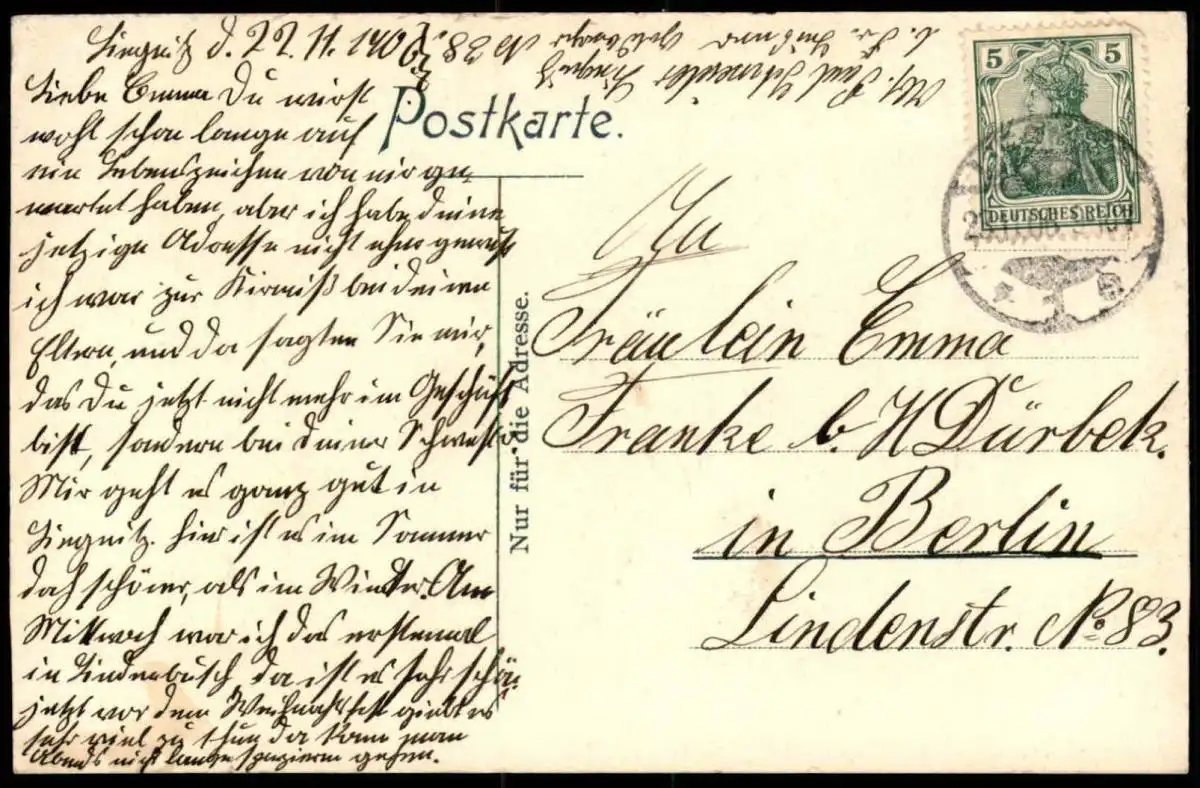 Liegnitz d. 22.11.1906
Liebe Emma Du wirst
wohl schon lange auf
ein Lebenszeichen von mir ge-
wartet haben, aber ich habe deine
jetzige Adresse nicht eher gewußt
ich war zur Kirmiß bei deinen
Eltern, und da sagten Sie mir,
das Du jetzt nicht mehr im Geschäft
bist, sondern bei deiner Schwester
Mir geht es ganz gut in
Liegnitz. hier ist es im Sommer
doch schöner, als im Winter. Am
Mittwoch war ich das erstemal
in Lindenbusch, da ist es sehr schön
jetzt vor dem Weihnachtsfest giebt es
sehr viel zu thun da kann man
Abends nicht lange spazieren gehen.
Liegnitz
No 38
Postkarte.
Nur für die Adresse.
5 5
DEUTSCHES REICH
An
Fräulein Emma
Franke b. H Dürbek.
in Berlin
Lindenstr. No 83.